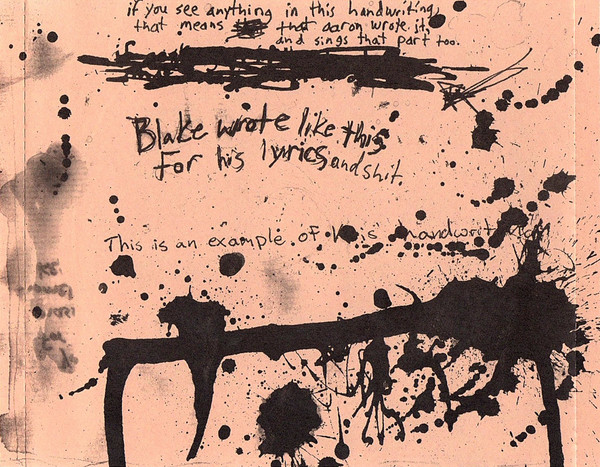 if you see anything in this handwriting,
that means that aaron wrote it,
and sings that part too.
Blake wrote like this
For his lyrics, and shit.
This is an example of